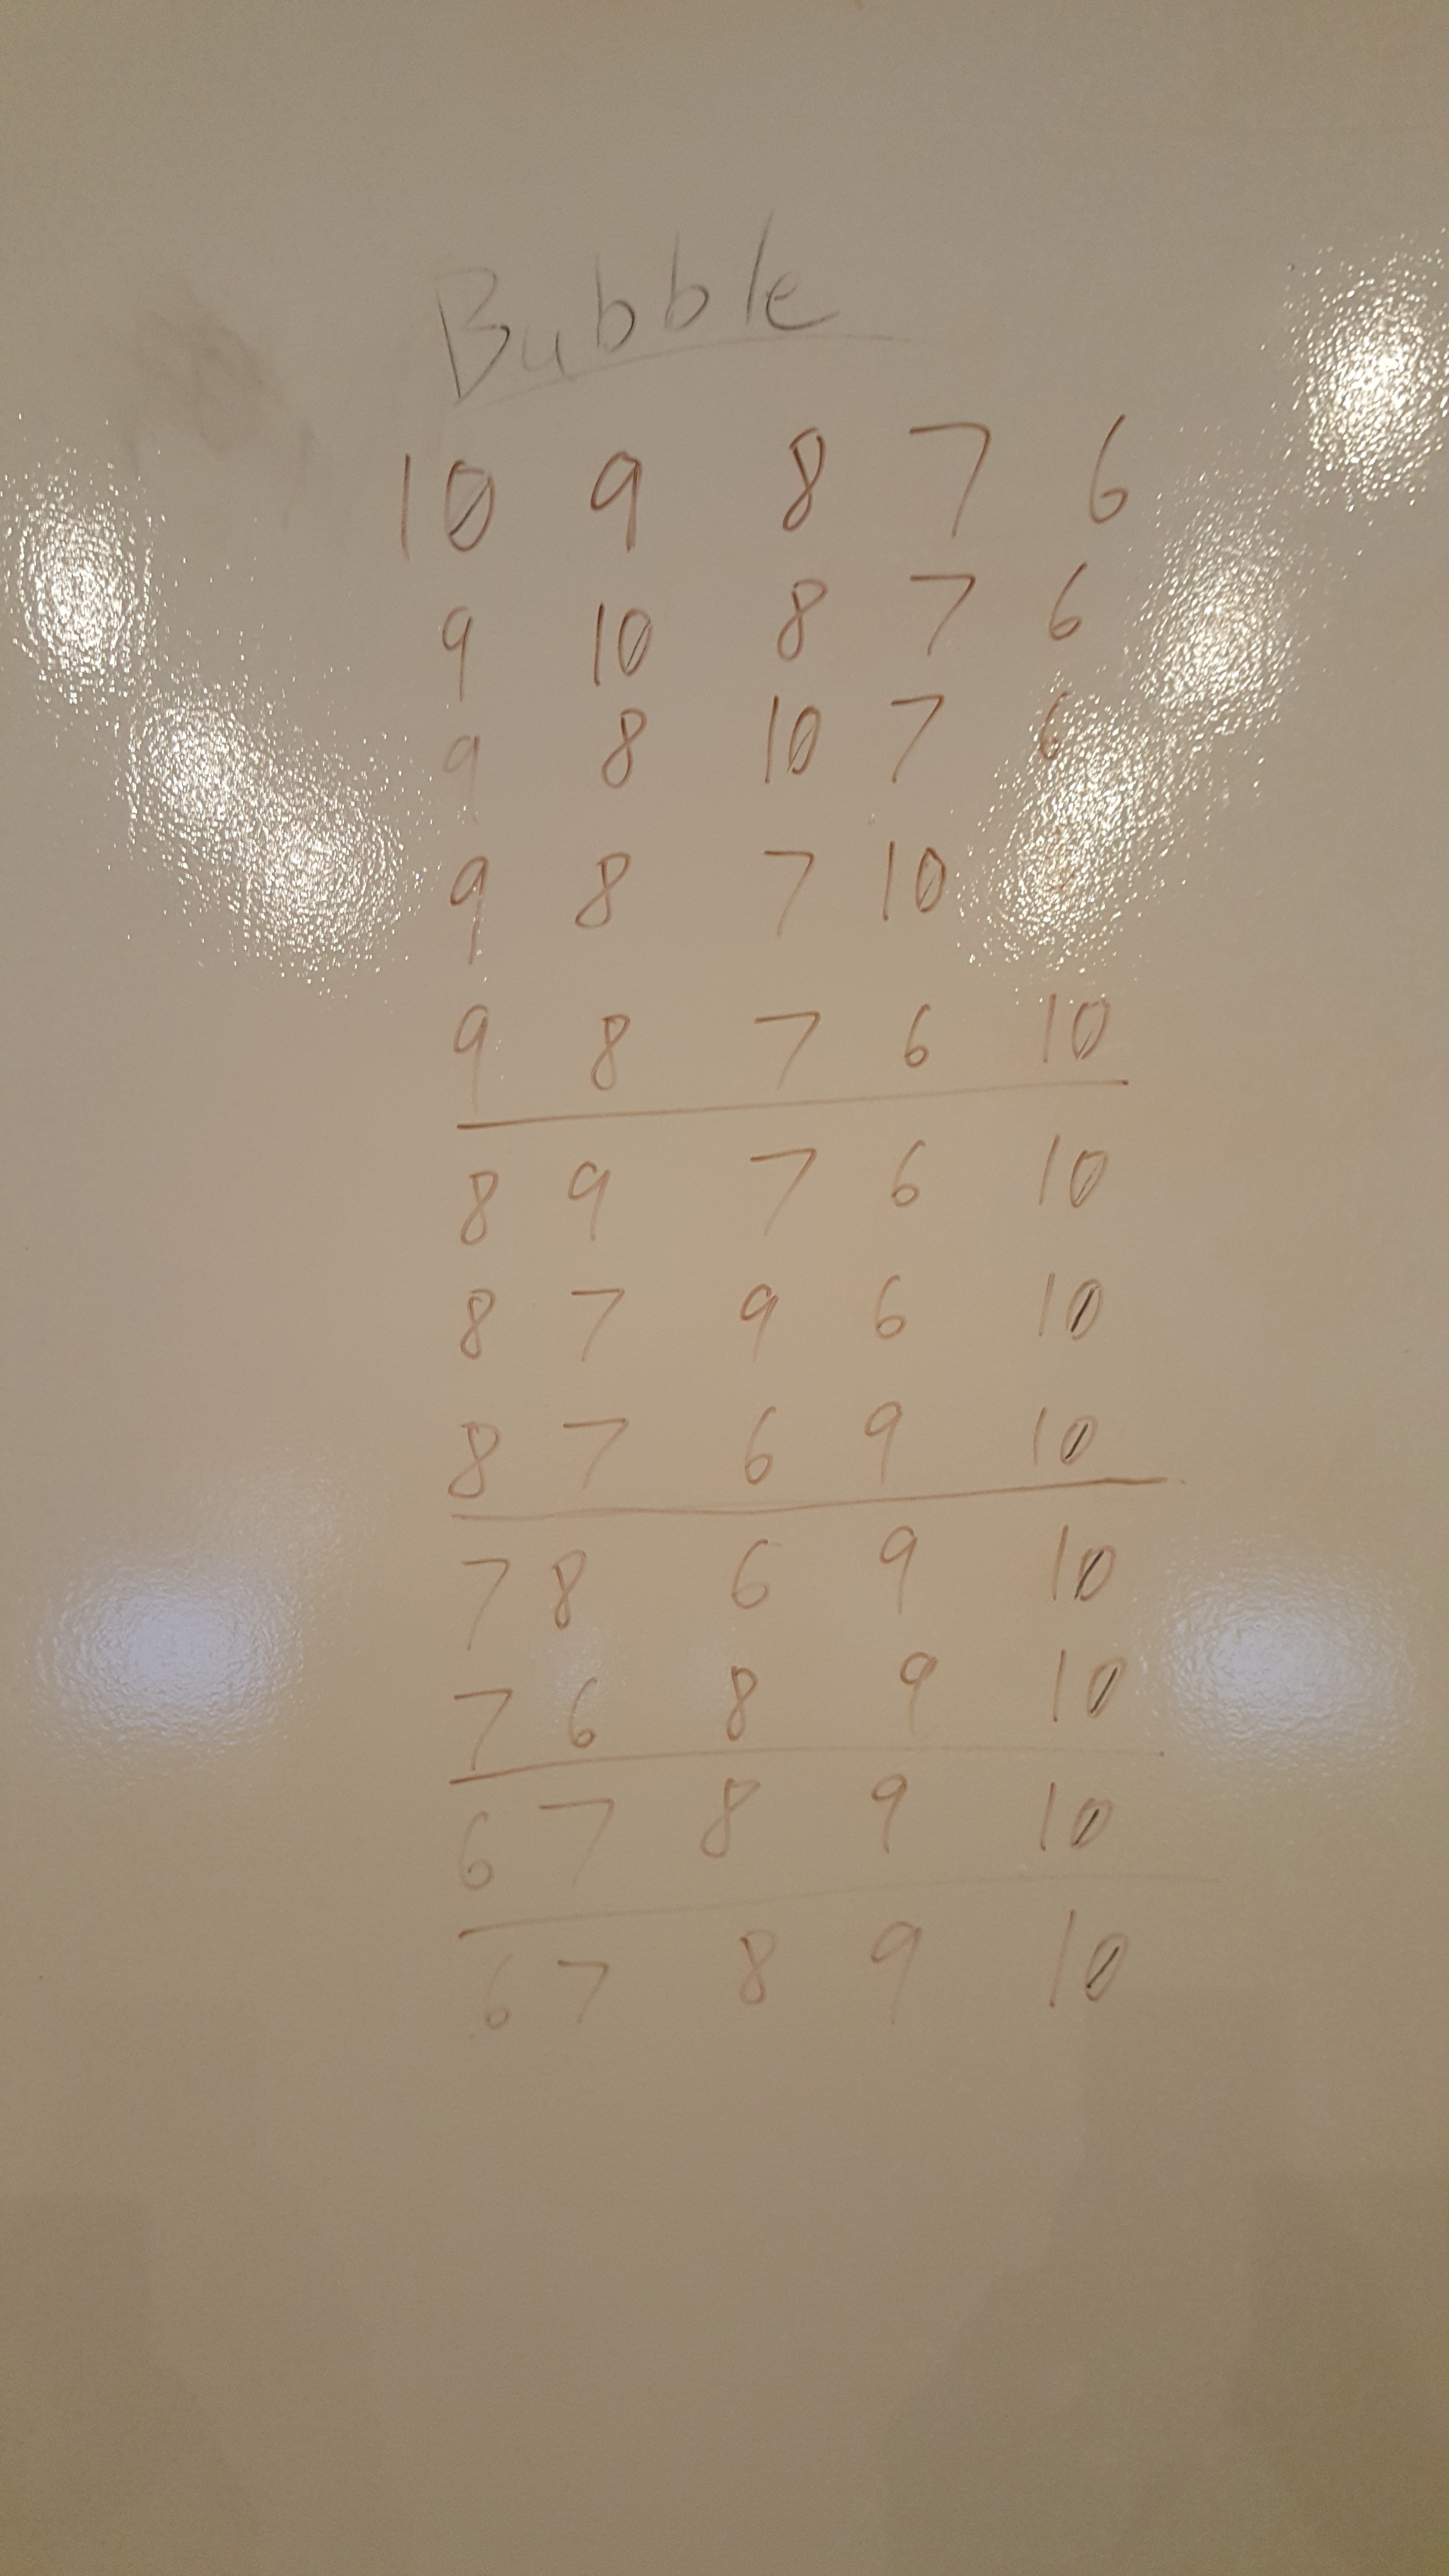 Bubble
10 9 8 7 6
9 10 8 7 6
9 8 10 7 6
9 8 7 10
9 8 7 6 10
8 9 7 6 10
8 7 9 6 10
8 7 6 9 10
7 8 6 9 10
7 6 8 9 10
6 7 8 9 10
6 7 8 9 10